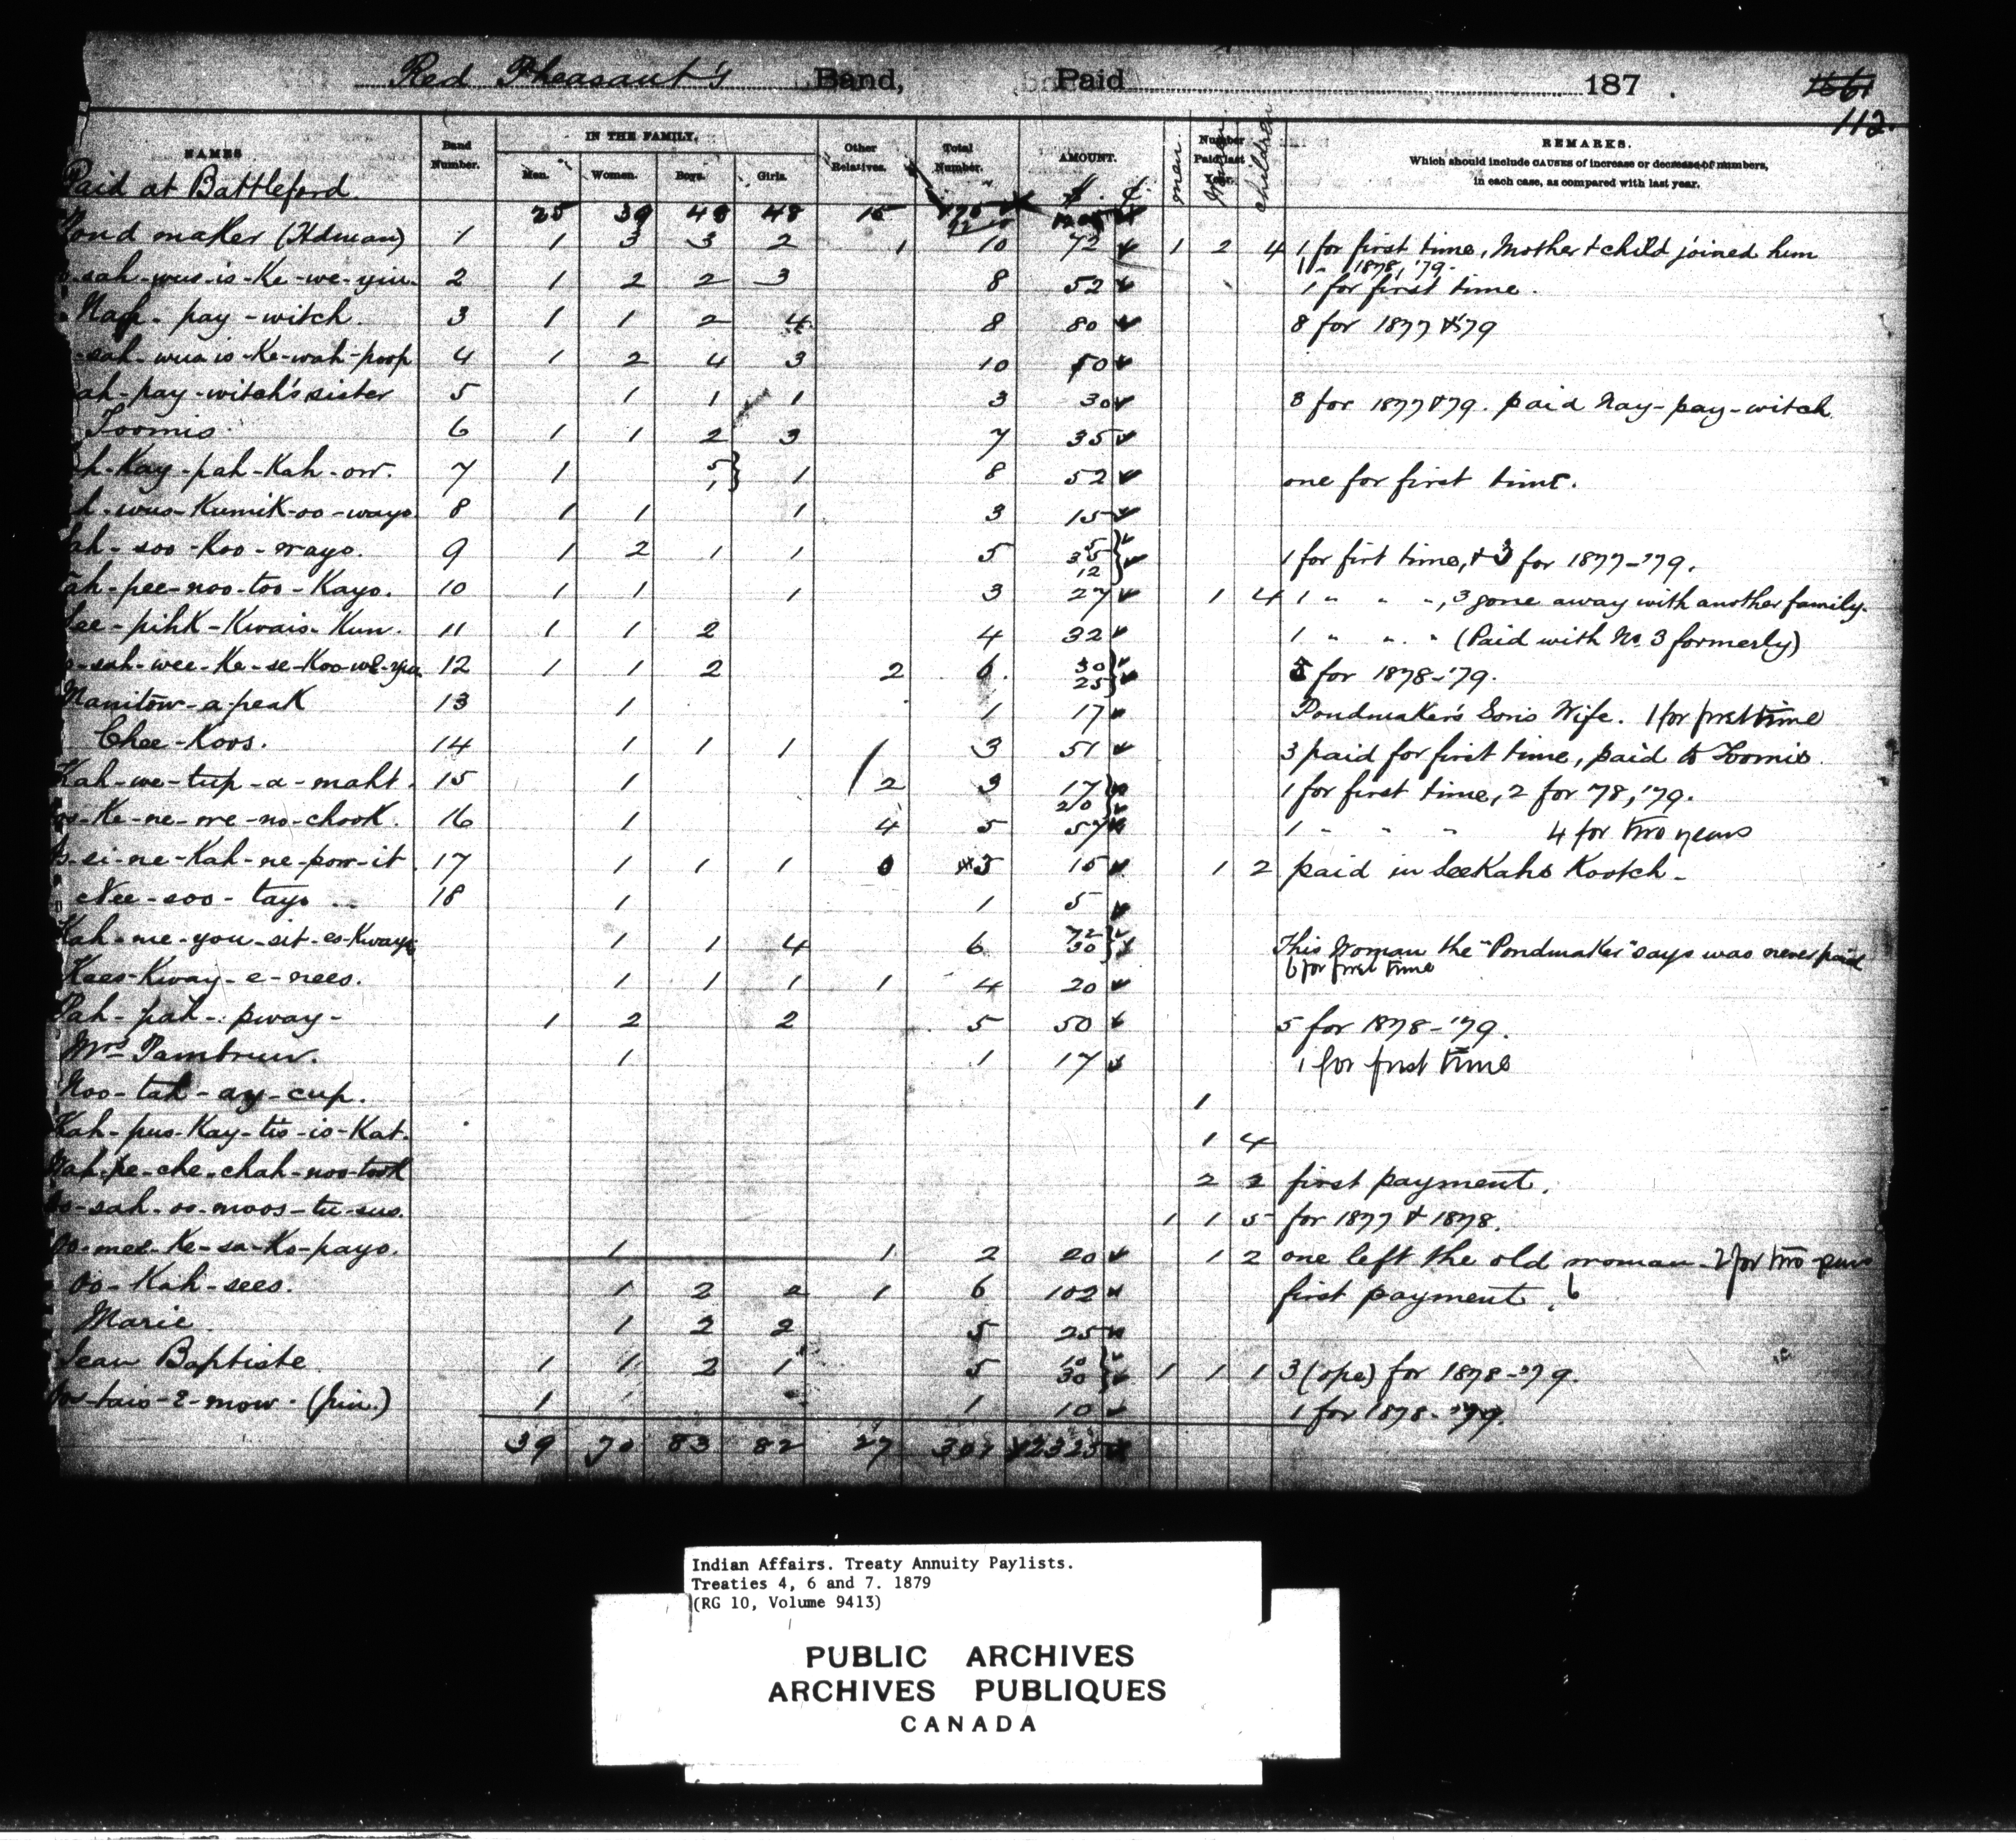 Red Pheasant's Band, Paid 187 .
112.
NAMES
Band Number.
IN THE FAMILY.
Men. Women. Boys. Girls.
Other Relatives.
Total Number.
AMOUNT.
$ ¢
Number Paid last Year.
men Women children
REMARKS.
Which should include CAUSES of increase or decrease of numbers,
in each case, as compared with last year.
Paid at Battleford.
25 39 48 15
Pond maker (Hdman) 1 1 3 3 2 1 10 72 1 2 4 1 for first time, Mother & child joined him
1878, '79.
sah-wus-is-Ke-we-yin 2 1 2 2 3 8 52 1 for first time.
pay-witch 3 1 1 2 4 8 80 8 for 1877 & '79
sah-wus-is-Ke-wah-poop 4 1 2 4 3 10 50
ah-pay-witch's sister 5 1 1 1 3 30 3 for 1877 & 79. paid Nay-pay-witch
Toomis 6 1 1 2 3 7 35
h-Kay-pah-Kah-ow. 7 1 5 1 } 1 8 52 one for first time.
h-wus-Kumik-oo-wayo 8 1 1 1 3 15
ah-soo-Koo-wayo. 9 1 2 1 1 5 5 35 12 } 1 for firt time, & 3 for 1877-'79.
ah-pee-noo-too-Kayo. 10 1 1 1 3 27 1 4 1 " " ", 3 gone away with another family.
ee-pihK-Kwais-Kun. 11 1 1 2 4 32 1 " " " (Paid with No. 3 formerly)
sah-wee-Ke-se-Koo-we-yin 12 1 1 2 2 6. 30 25 } 5 for 1878-'79.
Manitow-a-peaK 13 1 1 17 Pondmaker's Son's Wife. 1 for first time
Chee-Koos. 14 1 1 1 3 51 3 paid for first time, paid to Toomis.
Kah-we-tup-a-maht. 15 1 2 3 17 20 } 1 for first time, 2 for '78, '79.
Ke-ne-we-no-chooK. 16 1 4 5 57 1 " " " 4 for two years
si-ne-Kah-ne-pow-it 17 1 1 1 0 3 15 1 2 paid in SeeKahs Kootch -
Nee-soo-tayo 18 1 1 5
Kah-me-you-sit-es-Kwayo 1 1 4 6 72 30 } This Woman the "Pondmaker" says was never paid
6 for first time
Kees-Kway-e-nees. 1 1 1 1 4 20
Pah-pah-pway- 1 2 2 5 50 5 for 1878-'79.
Mrs Pambrun. 1 1 17 1 for first time
Noo-tah-ay-cup. 1
Kah-pus-Kay-tis-is-Kat. 1 4
pe-che-chah-noo-tooK 2 2 first payment.
sah-oo-moos-tu-sus. 1 1 5 for 1877 & 1878.
mee-Ke-sa-Ko-payo. 1 1 2 20 1 2 one left the old woman - 2 for two years
Oo-Kah-sees. 1 2 2 1 6 102 first payment. 6
Marie 1 2 2 5 25
Jean Baptiste 1 1 2 1 5 10 30 } 1 1 1 3 (ope) for 1878-'79.
tais-e-mow. (jun.) 1 1 10 1 for 1878-'79.
39 70 83 82 27 301 2325
Indian Affairs. Treaty Annuity Paylists.
Treaties 4, 6 and 7. 1879
(RG 10, Volume 9413)
PUBLIC ARCHIVES
ARCHIVES PUBLIQUES
CANADA